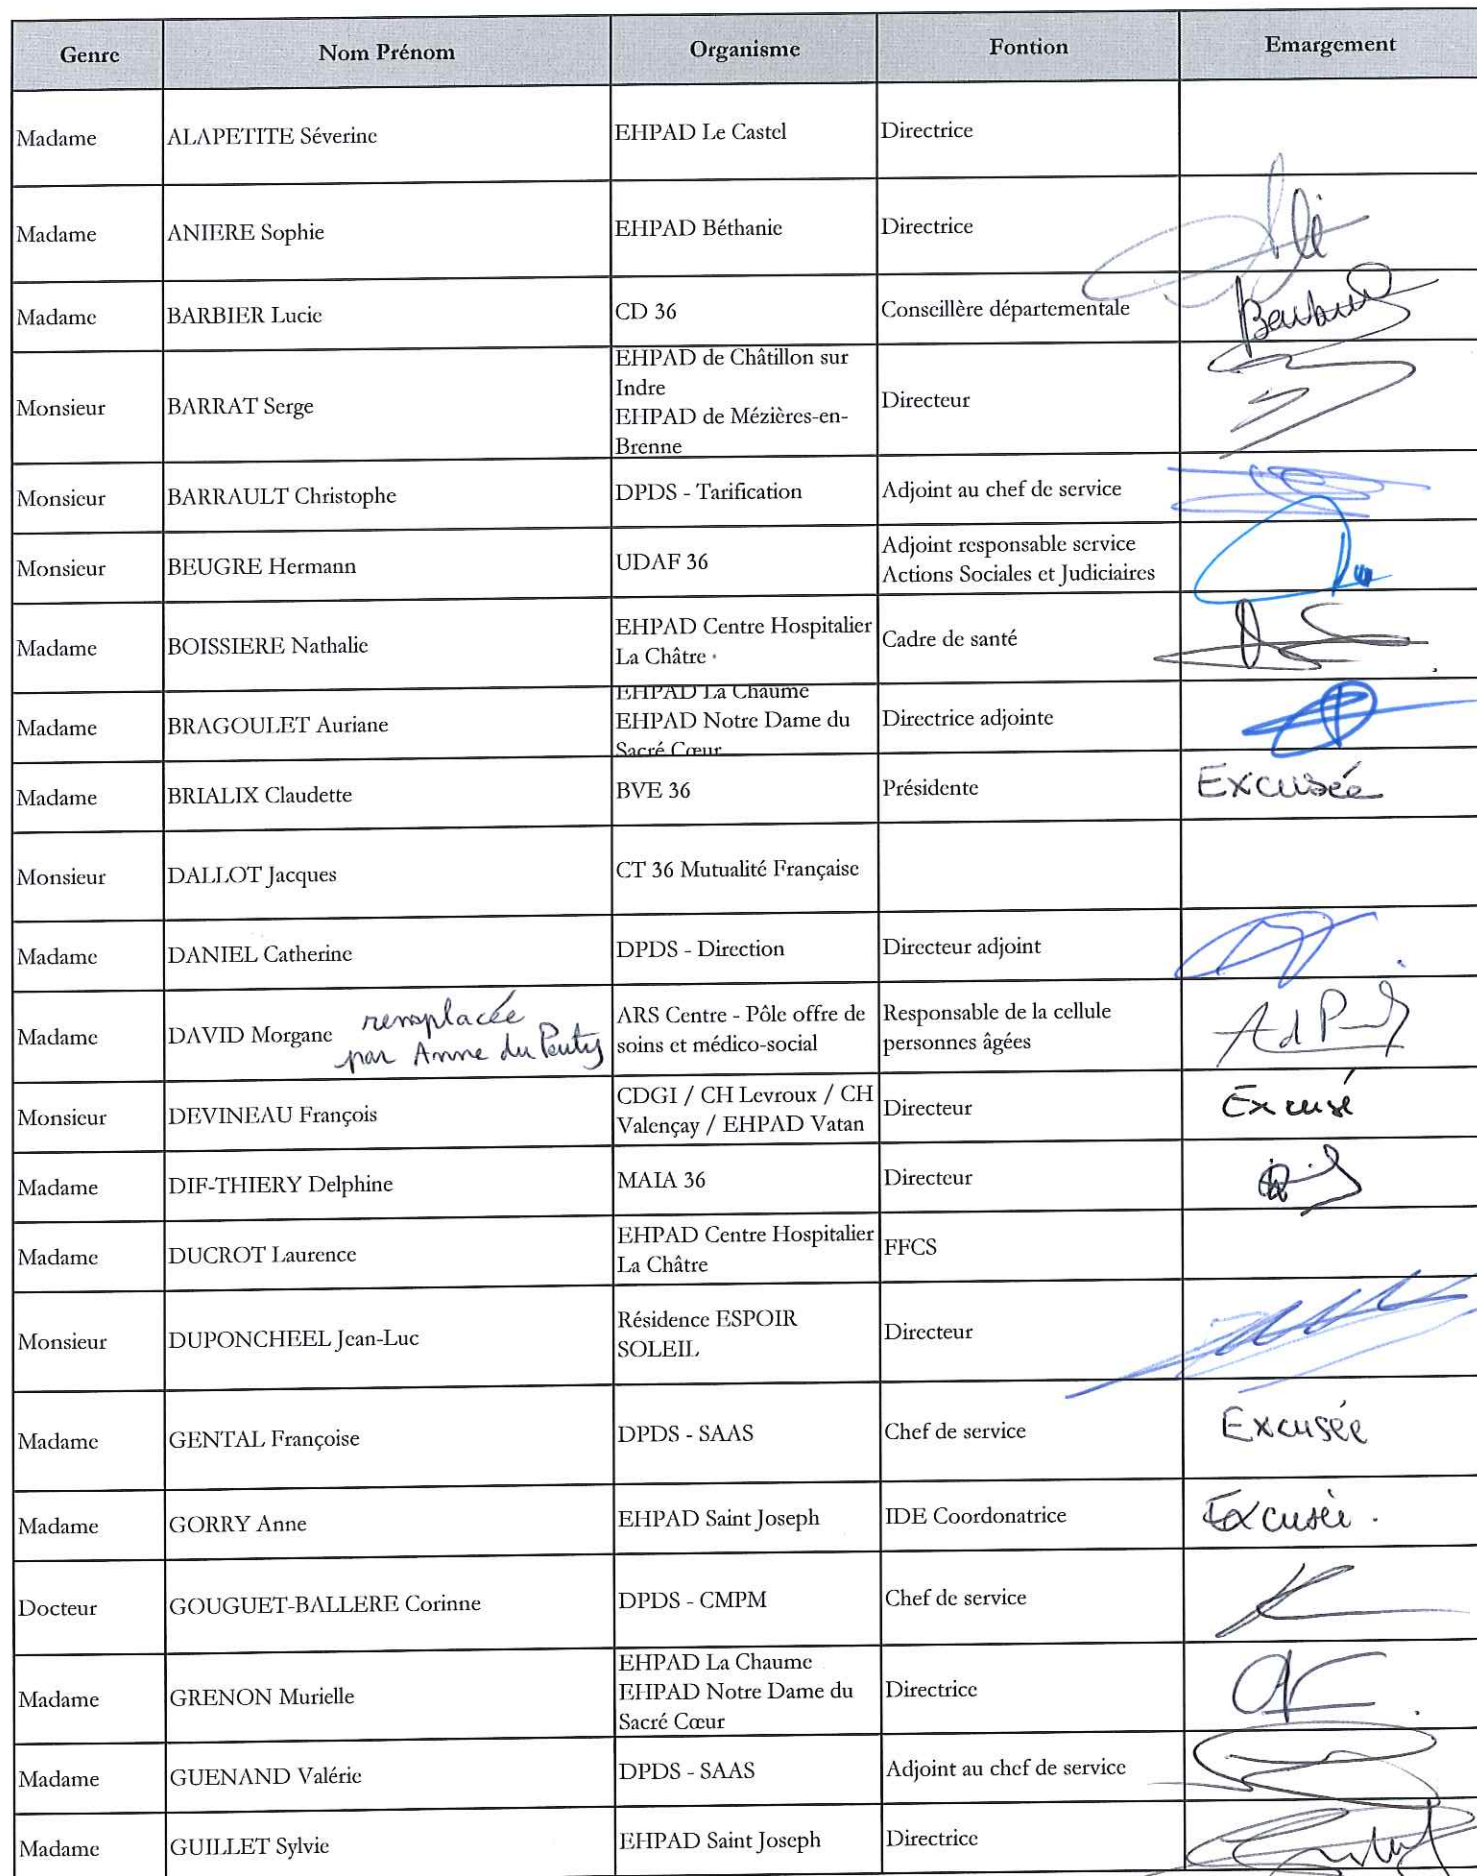 Genre Nom Prénom Organisme Fontion Emargement
Madame ALAPETITE Séverine EHPAD Le Castel Directrice
Madame ANIERE Sophie EHPAD Béthanie Directrice
Madame BARBIER Lucie CD 36 Conseillère départementale
Monsieur BARRAT Serge EHPAD de Châtillon sur
Indre
EHPAD de Mézières-en-
Brenne Directeur
Monsieur BARRAULT Christophe DPDS - Tarification Adjoint au chef de service
Monsieur BEUGRE Hermann UDAF 36 Adjoint responsable service
Actions Sociales et Judiciaires
Madame BOISSIERE Nathalie EHPAD Centre Hospitalier
La Châtre Cadre de santé
Madame BRAGOULET Auriane EHPAD La Chaume
EHPAD Notre Dame du
Sacré Cœur Directrice adjointe
Madame BRIALIX Claudette BVE 36 Présidente Excusée
Monsieur DALLOT Jacques CT 36 Mutualité Française
Madame DANIEL Catherine DPDS - Direction Directeur adjoint
Madame DAVID Morgane remplacée
par Anne du ARS Centre - Pôle offre de
soins et médico-social Responsable de la cellule
personnes âgées
Monsieur DEVINEAU François CDGI / CH Levroux / CH
Valençay / EHPAD Vatan Directeur Excusé
Madame DIF-THIERY Delphine MAIA 36 Directeur
Madame DUCROT Laurence EHPAD Centre Hospitalier
La Châtre FFCS
Monsieur DUPONCHEEL Jean-Luc Résidence ESPOIR
SOLEIL Directeur
Madame GENTAL Françoise DPDS - SAAS Chef de service Excusée
Madame GORRY Anne EHPAD Saint Joseph IDE Coordonatrice Excusée.
Docteur GOUGUET-BALLERE Corinne DPDS - CMPM Chef de service
Madame GRENON Murielle EHPAD La Chaume
EHPAD Notre Dame du
Sacré Cœur Directrice
Madame GUENAND Valérie DPDS - SAAS Adjoint au chef de service
Madame GUILLET Sylvie EHPAD Saint Joseph Directrice